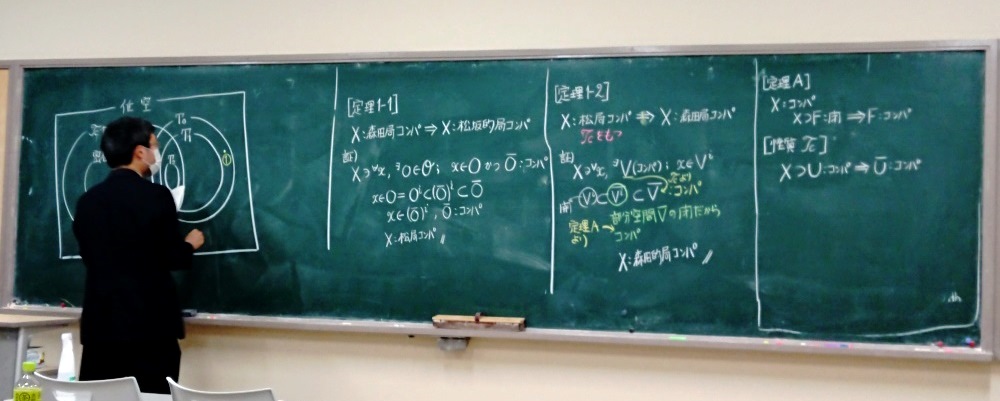 位空
T₀
T₁
①
[定理1-1]
X:森田局コンパ⇒X:松坂的局コンパ
証)
X∋∀x, ∃O∈𝒪; x∈OかつO̅:コンパ
x∈O=Oⁱ⊂(O̅)ⁱ⊂O̅
x∈(O̅)ⁱ, O̅:コンパ
X:松局コンパ〃
[定理1-2]
X:松局コンパ⇒X:森田局コンパ
をもつ
証)
X∋∀x, ∃V(コンパ); x∈Vⁱ
:コンパ
定理Aより
部分空間V̅の閉だから
コンパ
X:森田的局コンパ〃
[定理A]
X:コンパ
X⊃F:閉⇒F:コンパ
X⊃U:コンパ⇒U̅:コンパ